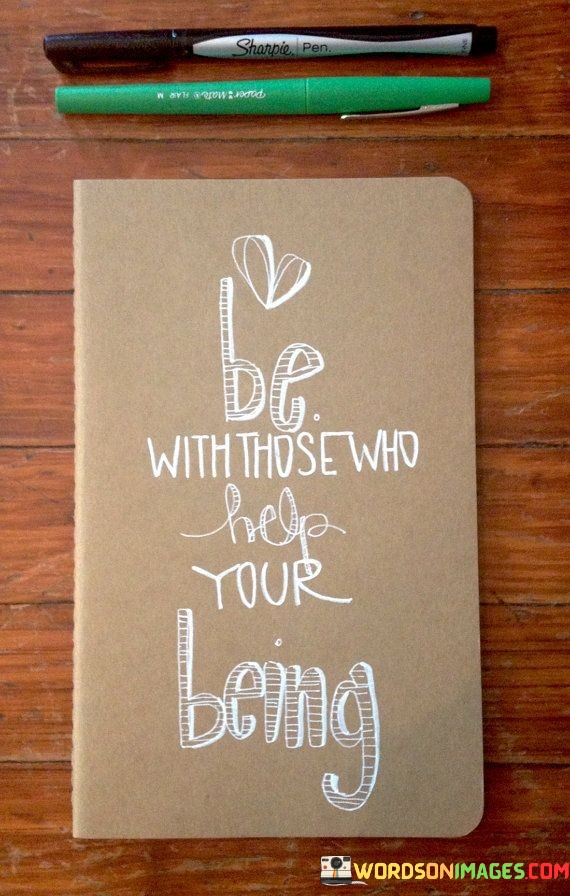 Sharpie. Pen.
Paper Mate ® FLAIR M
be.
WITH THOSE WHO
help
YOUR
being
WORDSONIMAGES.COM